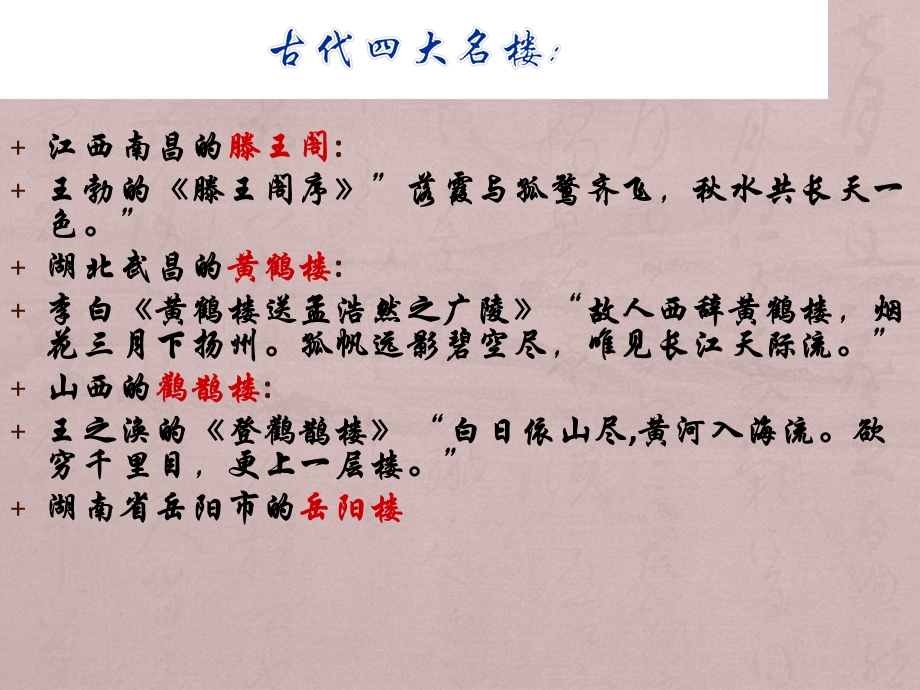 古代四大名楼：
+ 江西南昌的滕王阁：
+ 王勃的《滕王阁序》”落霞与孤鹜齐飞，秋水共长天一
色。”
+ 湖北武昌的黄鹤楼：
+ 李白《黄鹤楼送孟浩然之广陵》“故人西辞黄鹤楼，烟
花三月下扬州。孤帆远影碧空尽，唯见长江天际流。”
+ 山西的鹳鹊楼：
+ 王之涣的《登鹳鹊楼》 “白日依山尽,黄河入海流。欲
穷千里目，更上一层楼。”
+ 湖南省岳阳市的岳阳楼